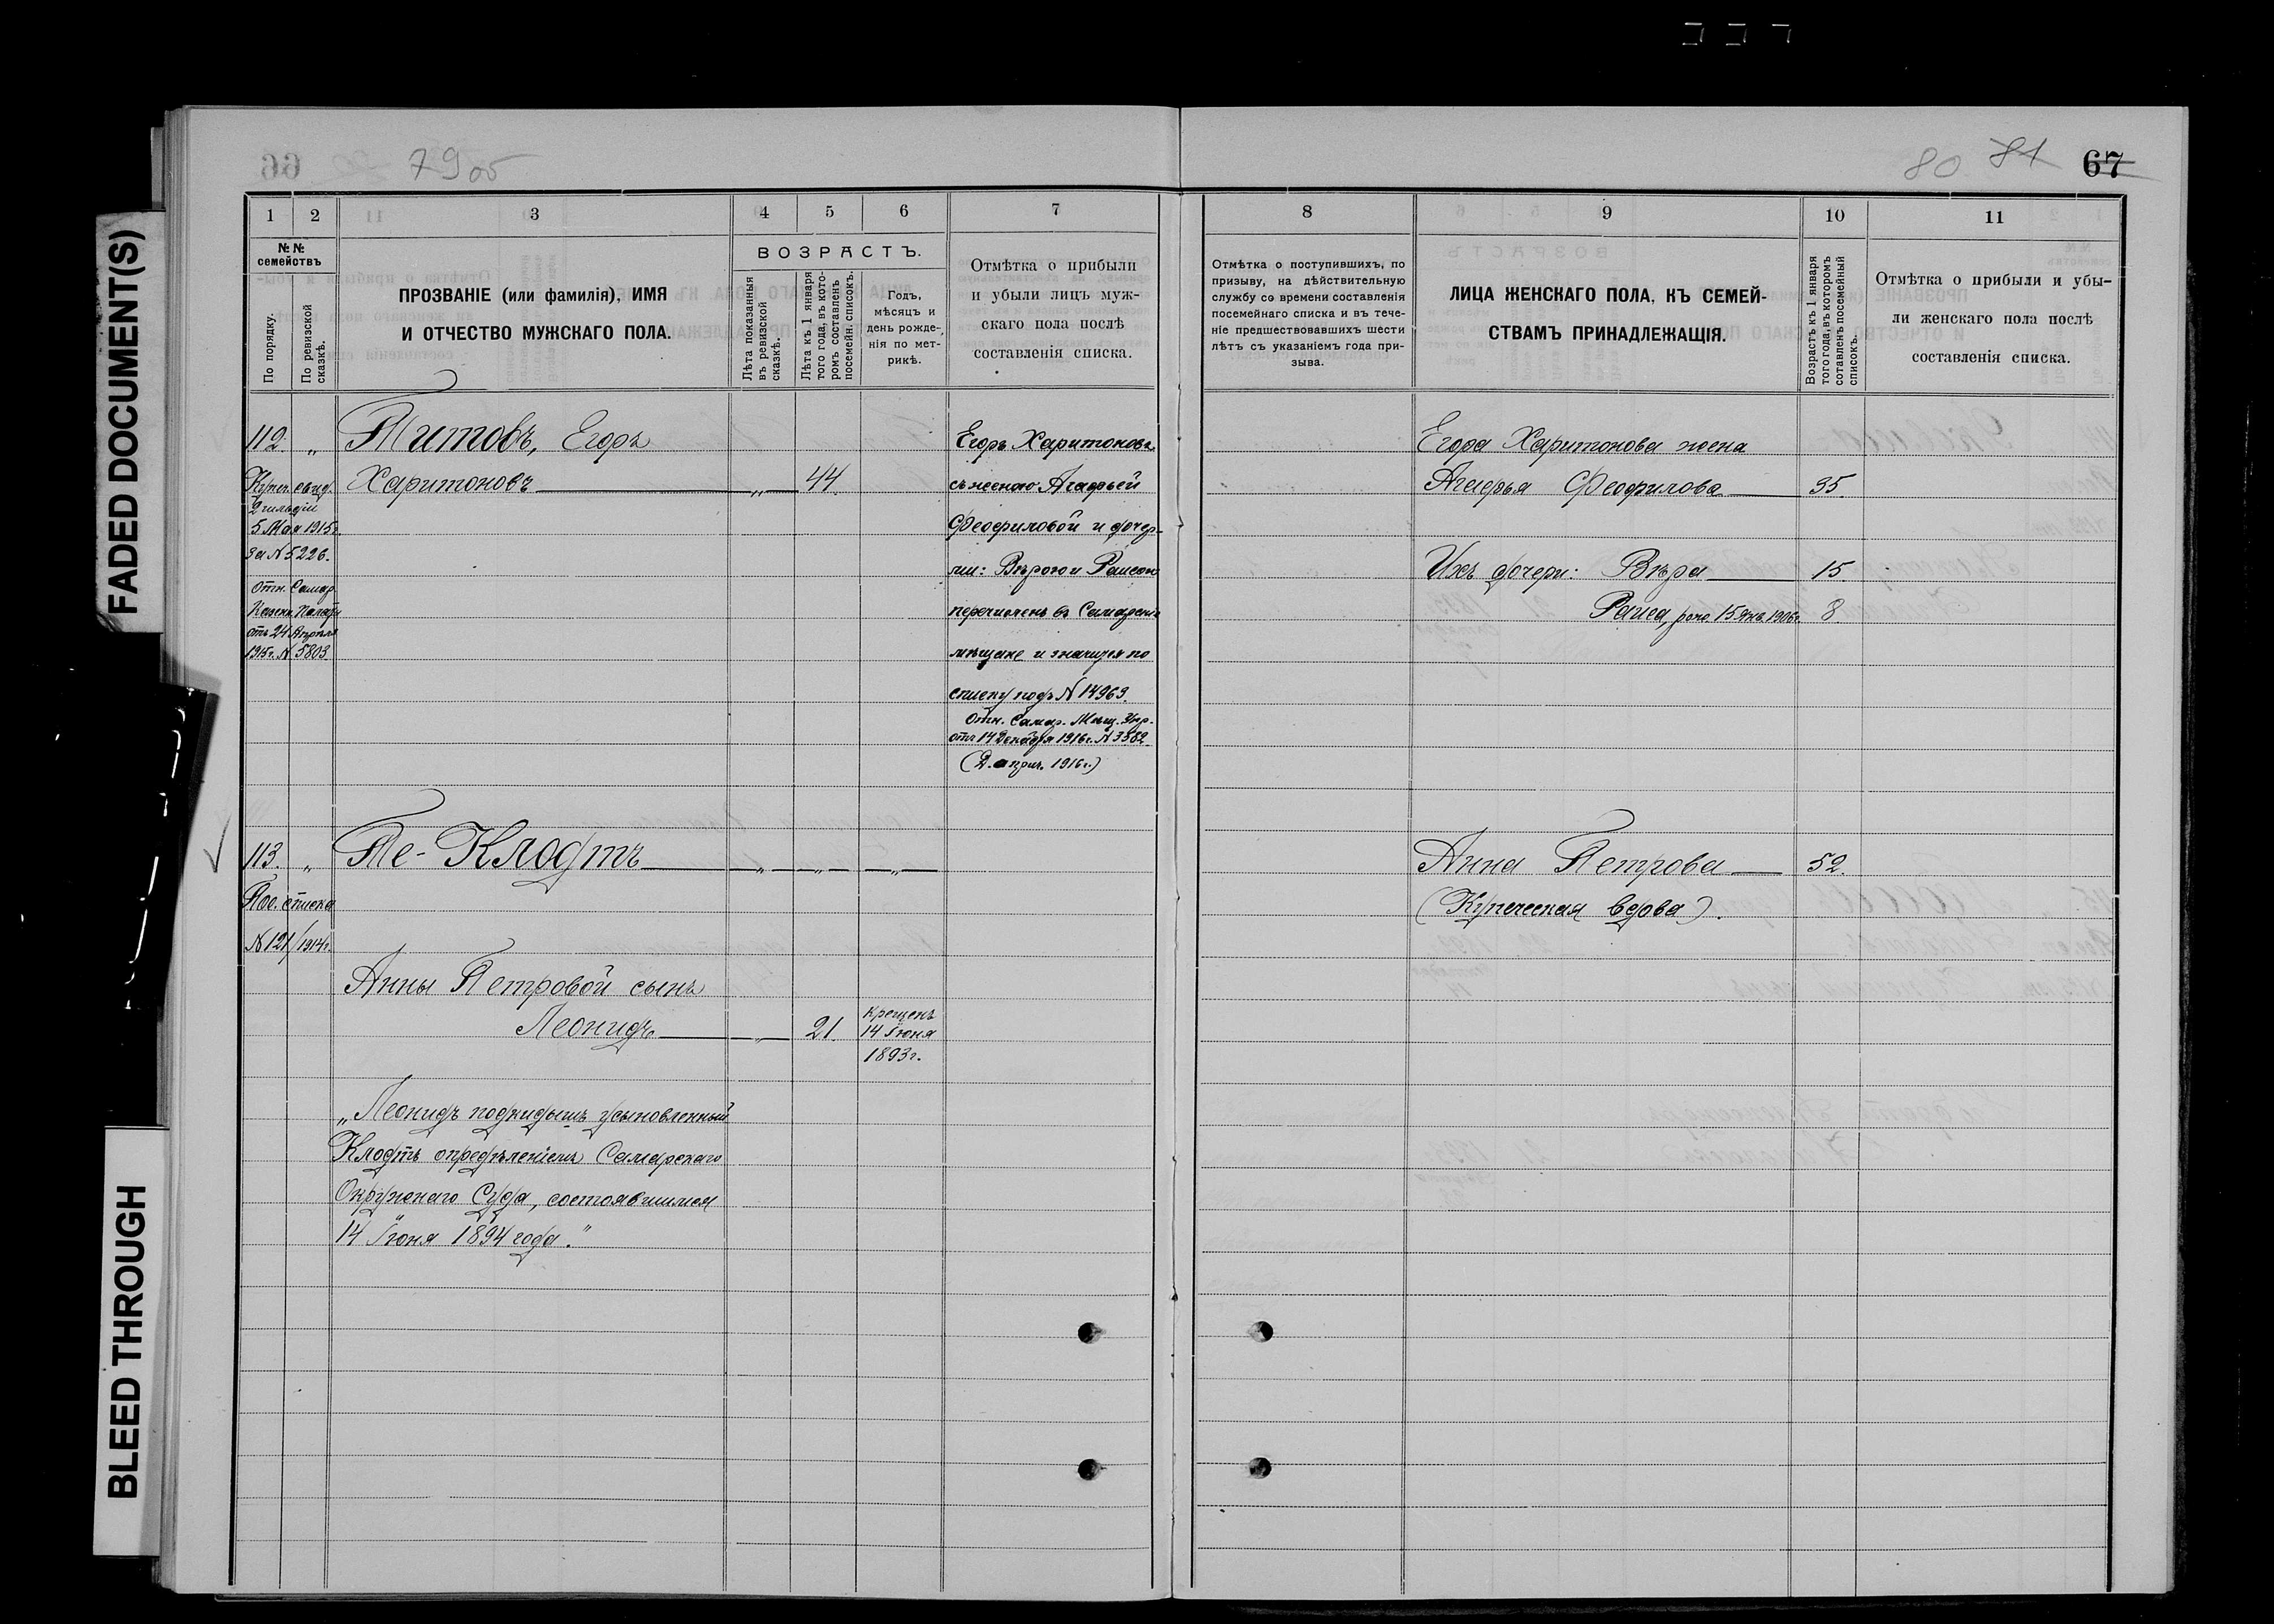 FADED DOCUMENT(S)
BLEED THROUGH
79 об
80 81 67
1 2 3 4 5 6 7
№№ семействъ
По порядку.
По ревизской сказкѣ.
ПРОЗВАНІЕ (или фамилія), ИМЯ
И ОТЧЕСТВО МУЖСКАГО ПОЛА.
ВОЗРАСТЪ.
Лѣта показанныя въ ревизской сказкѣ.
Лѣта къ 1 января того года, въ которомъ составленъ посемейн. списокъ.
Годъ,
мѣсяцъ и
день рожде-
нія по мет-
рикѣ.
Отмѣтка о прибыли
и убыли лицъ муж-
скаго пола послѣ
составленія списка.
112. „ Титовъ, Егоръ
Харитоновъ „ 44.
Купеч. свид.
2 гильдіи
5 Мая 1915г.
за № 5226.
Отн. Самар.
Казен. Палаты
отъ 24 Апрѣля
1915г. № 5803
Егоръ Харитоновъ
съ женою Агафьей
Феофиловой и дочер-
ми: Вѣрою и Раисою
перечисленъ въ Самарскіе
мѣщане и значится по
списку подъ № 14963.
Отн. Самар. Мѣщ. Упр.
отъ 14 Декабря 1916г. № 3382
(Д. о прич. 1916г.)
113. „ Те-Клодтъ „ „ „
Пос. списка
№ 121/1914г.
Анны Петровой сынъ
Леонидъ „ 21.
крещенъ
14 Іюня
1893г.
„Леонидъ подкидышъ усыновленный
Клодтъ опредѣленіемъ Самарскаго
Окружнаго Суда, состоявшимся
14 Іюня 1894 года."
8 9 10 11
Отмѣтка о поступившихъ, по
призыву, на дѣйствительную
службу со времени составленія
посемейнаго списка и въ тече-
ніе предшествовавшихъ шести
лѣтъ съ указаніемъ года при-
зыва.
ЛИЦА ЖЕНСКАГО ПОЛА, КЪ СЕМЕЙ-
СТВАМЪ ПРИНАДЛЕЖАЩІЯ.
Возрастъ къ 1 января того года, въ которомъ сотавленъ посемейный списокъ.
Отмѣтка о прибыли и убы-
ли женскаго пола послѣ
составленія списка.
Егора Харитонова жена
Агафья Феофилова 35.
Ихъ дочери: Вѣра 15
Раиса, рожд. 15 Янв. 1906г. 8.
Анна Петрова 52.
(Купеческая вдова).